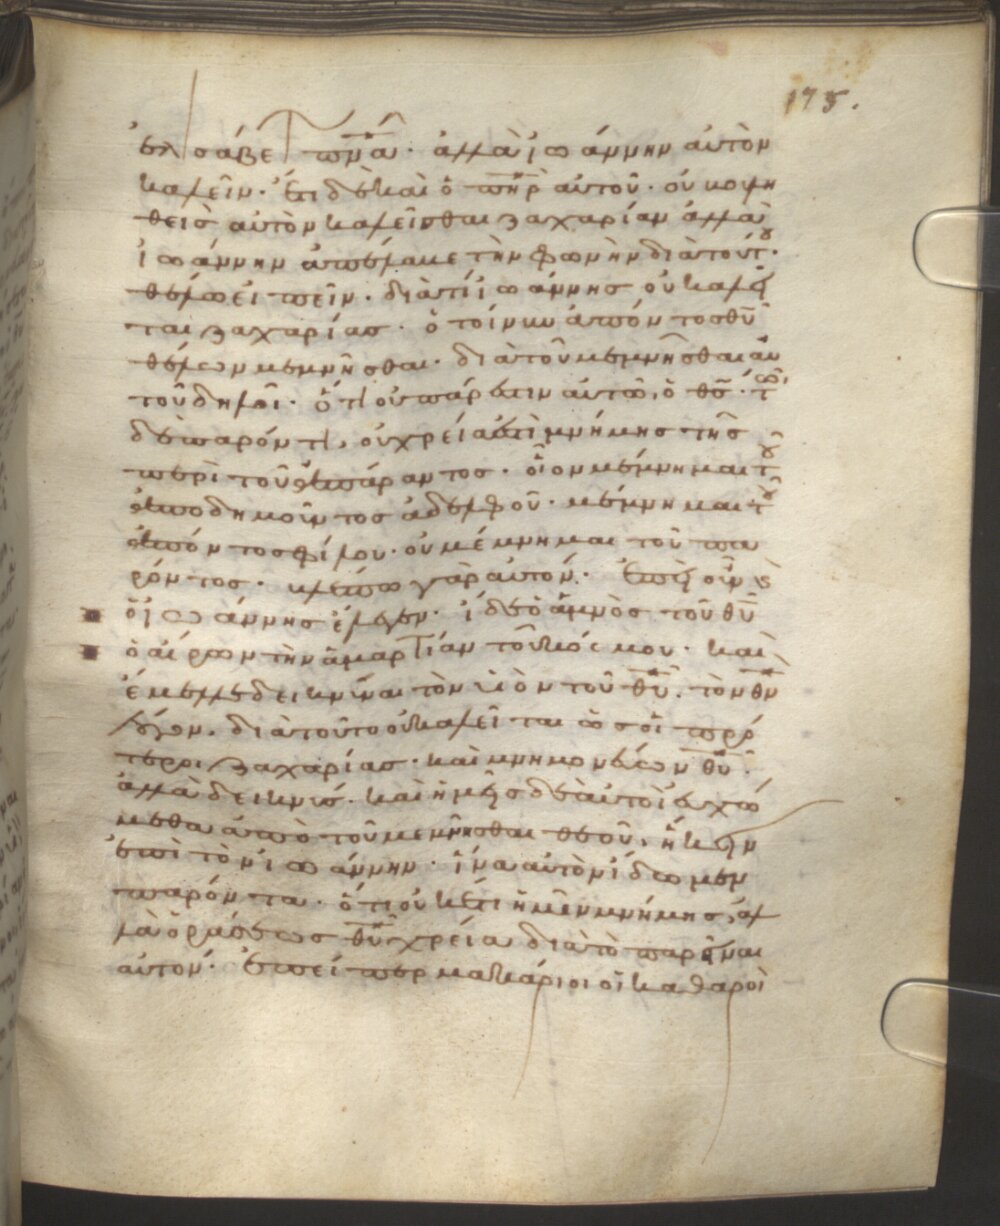 175.
ἐλισάβετ πνᾶ· ἀλλὰ ἰωάννην αὐτὸν
καλεῖν· ἔτι δὲ καὶ ὁ πηρ αὐτοῦ· οὐ
θεὶς αὐτὸν καλεῖσθαι ζαχαρίαν ἀλλὰ
ἰωάννην τὴν φωνὴν διὰ τούτου·
θέλω εἰπεῖν· διὰ τί ἰωάννης οὐ καλεῖ
ται ζαχαρίας· ὁ τοίνυν ἀπόντος θυ
θέλων μεμνῆσθαι· διὰ τοῦ μεμνῆσθαι αὐ
τοῦ δηλοῖ· ὅτι οὐ πάρεστιν αὐτῶ ὁ θς· τῶ
δὲ παρόντι, οὐ χρεία ἐστὶ μνήμης τῆς
περὶ τοῦ παρόντος· οἷον μέμνημαι τοῦ
ἀποδημοῦντος ἀδελφοῦ· μέμνημαι τοῦ
ἀπόντος φίλου· οὐ μέμνημαι τοῦ πα
ρόντος· βλέπω γὰρ αὐτόν· ἐπεὶ οὖν
ὁ ἰωάννης ἔλεγεν· ἴδε ὁ ἀμνὸς τοῦ θυ
ὁ αἴρων τὴν ἁμαρτίαν τοῦ κόσμου· καὶ
ἔμελλε δεικνύναι τὸν υἱὸν τοῦ θυ· τὸν θν
λόγον· διὰ τοῦτο οὐ καλεῖται ὡς οἱ πρό
τεροι ζαχαρίας· καὶ μνημονεύων θυ·
ἀλλὰ δεικνύς· καὶ ἡμεῖς δὲ αὐτοὶ εὐχώ
μεθα ἀπὸ τοῦ μεμνῆσθαι θεοῦ, ἥκειν
ἐπὶ τὸν ἰωάννην· ἵνα αὐτὸν ἴδωμεν
παρόντα· ὅτι οὐκέτι ἡμῖν μνήμης, ἀλ
λὰ ὁράσεως θυ χρεία διὰ τὸ παρεῖναι
αὐτόν· ἐπείπερ μακάριοι οἱ καθαροὶ